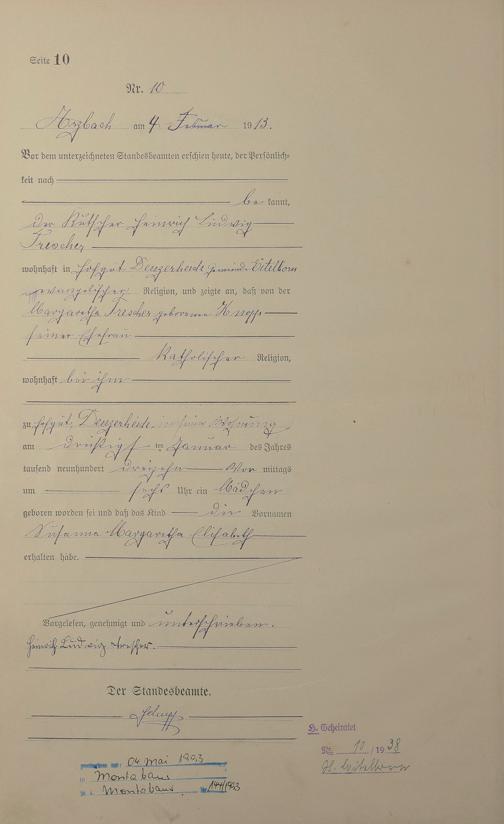 Seite 10
Nr. 10
Arzbach am 4 Februar 1913.
Vor dem unterzeichneten Standesbeamten erschien heute, der Persönlich-
keit nach
be kannt,
der Kutscher Heinrich Ludwig
Frescher
wohnhaft in Hofgut Denzerheide, Gemeinde Eitelborn
evangelischer Religion, und zeigte an, daß von der
Margaretha Frescher geborenen Knopp
seiner Ehefrau
Katholischer Religion,
wohnhaft bei ihm
zu Hofgut Denzerheide, in seiner Wohnung
am dreißigst en Januar des Jahres
tausend neunhundert dreizehn Vor mittags
um sechs Uhr ein Mädchen
geboren worden sei und daß das Kind die Vornamen
Susanna Margaretha Elisabeth
erhalten habe.
Vorgelesen, genehmigt und unterschrieben.
Heinrich Ludwig Frescher.
Der Standesbeamte.
04. Mai
Montabaur
Montabaur
Geheiratet
Nr. 10 / 1938
Eitelborn